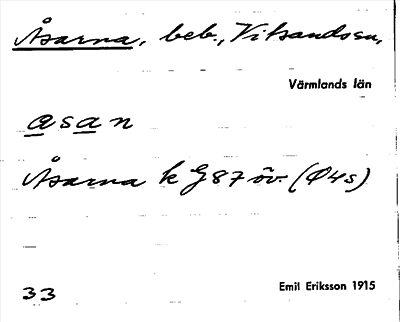 Åsarna, beb., Vitsands sn,
Värmlands län
asan
Åsarna k G87 öv. (Ø4s)
33
Emil Eriksson 1915